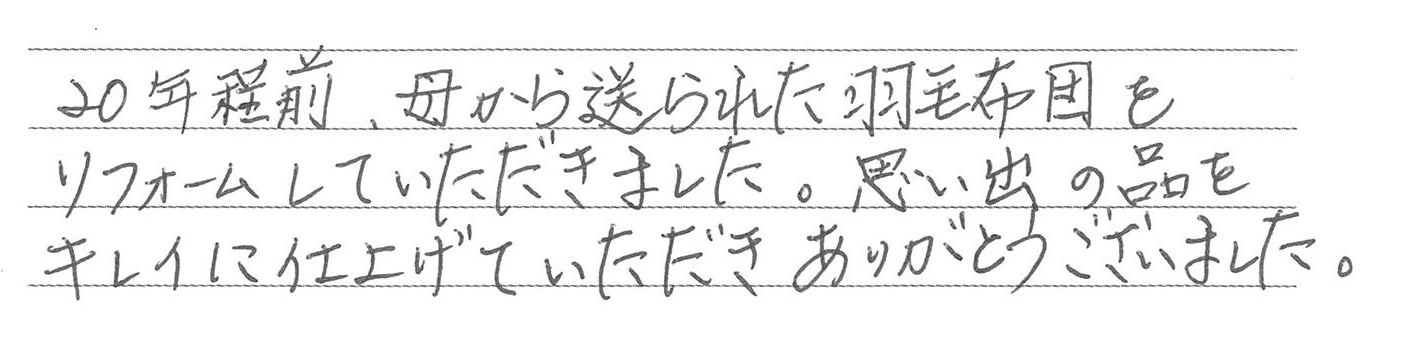 20年程前、母から送られた羽毛布団を
リフォームしていただきました。思い出の品を
キレイに仕上げていただきありがとうございました。